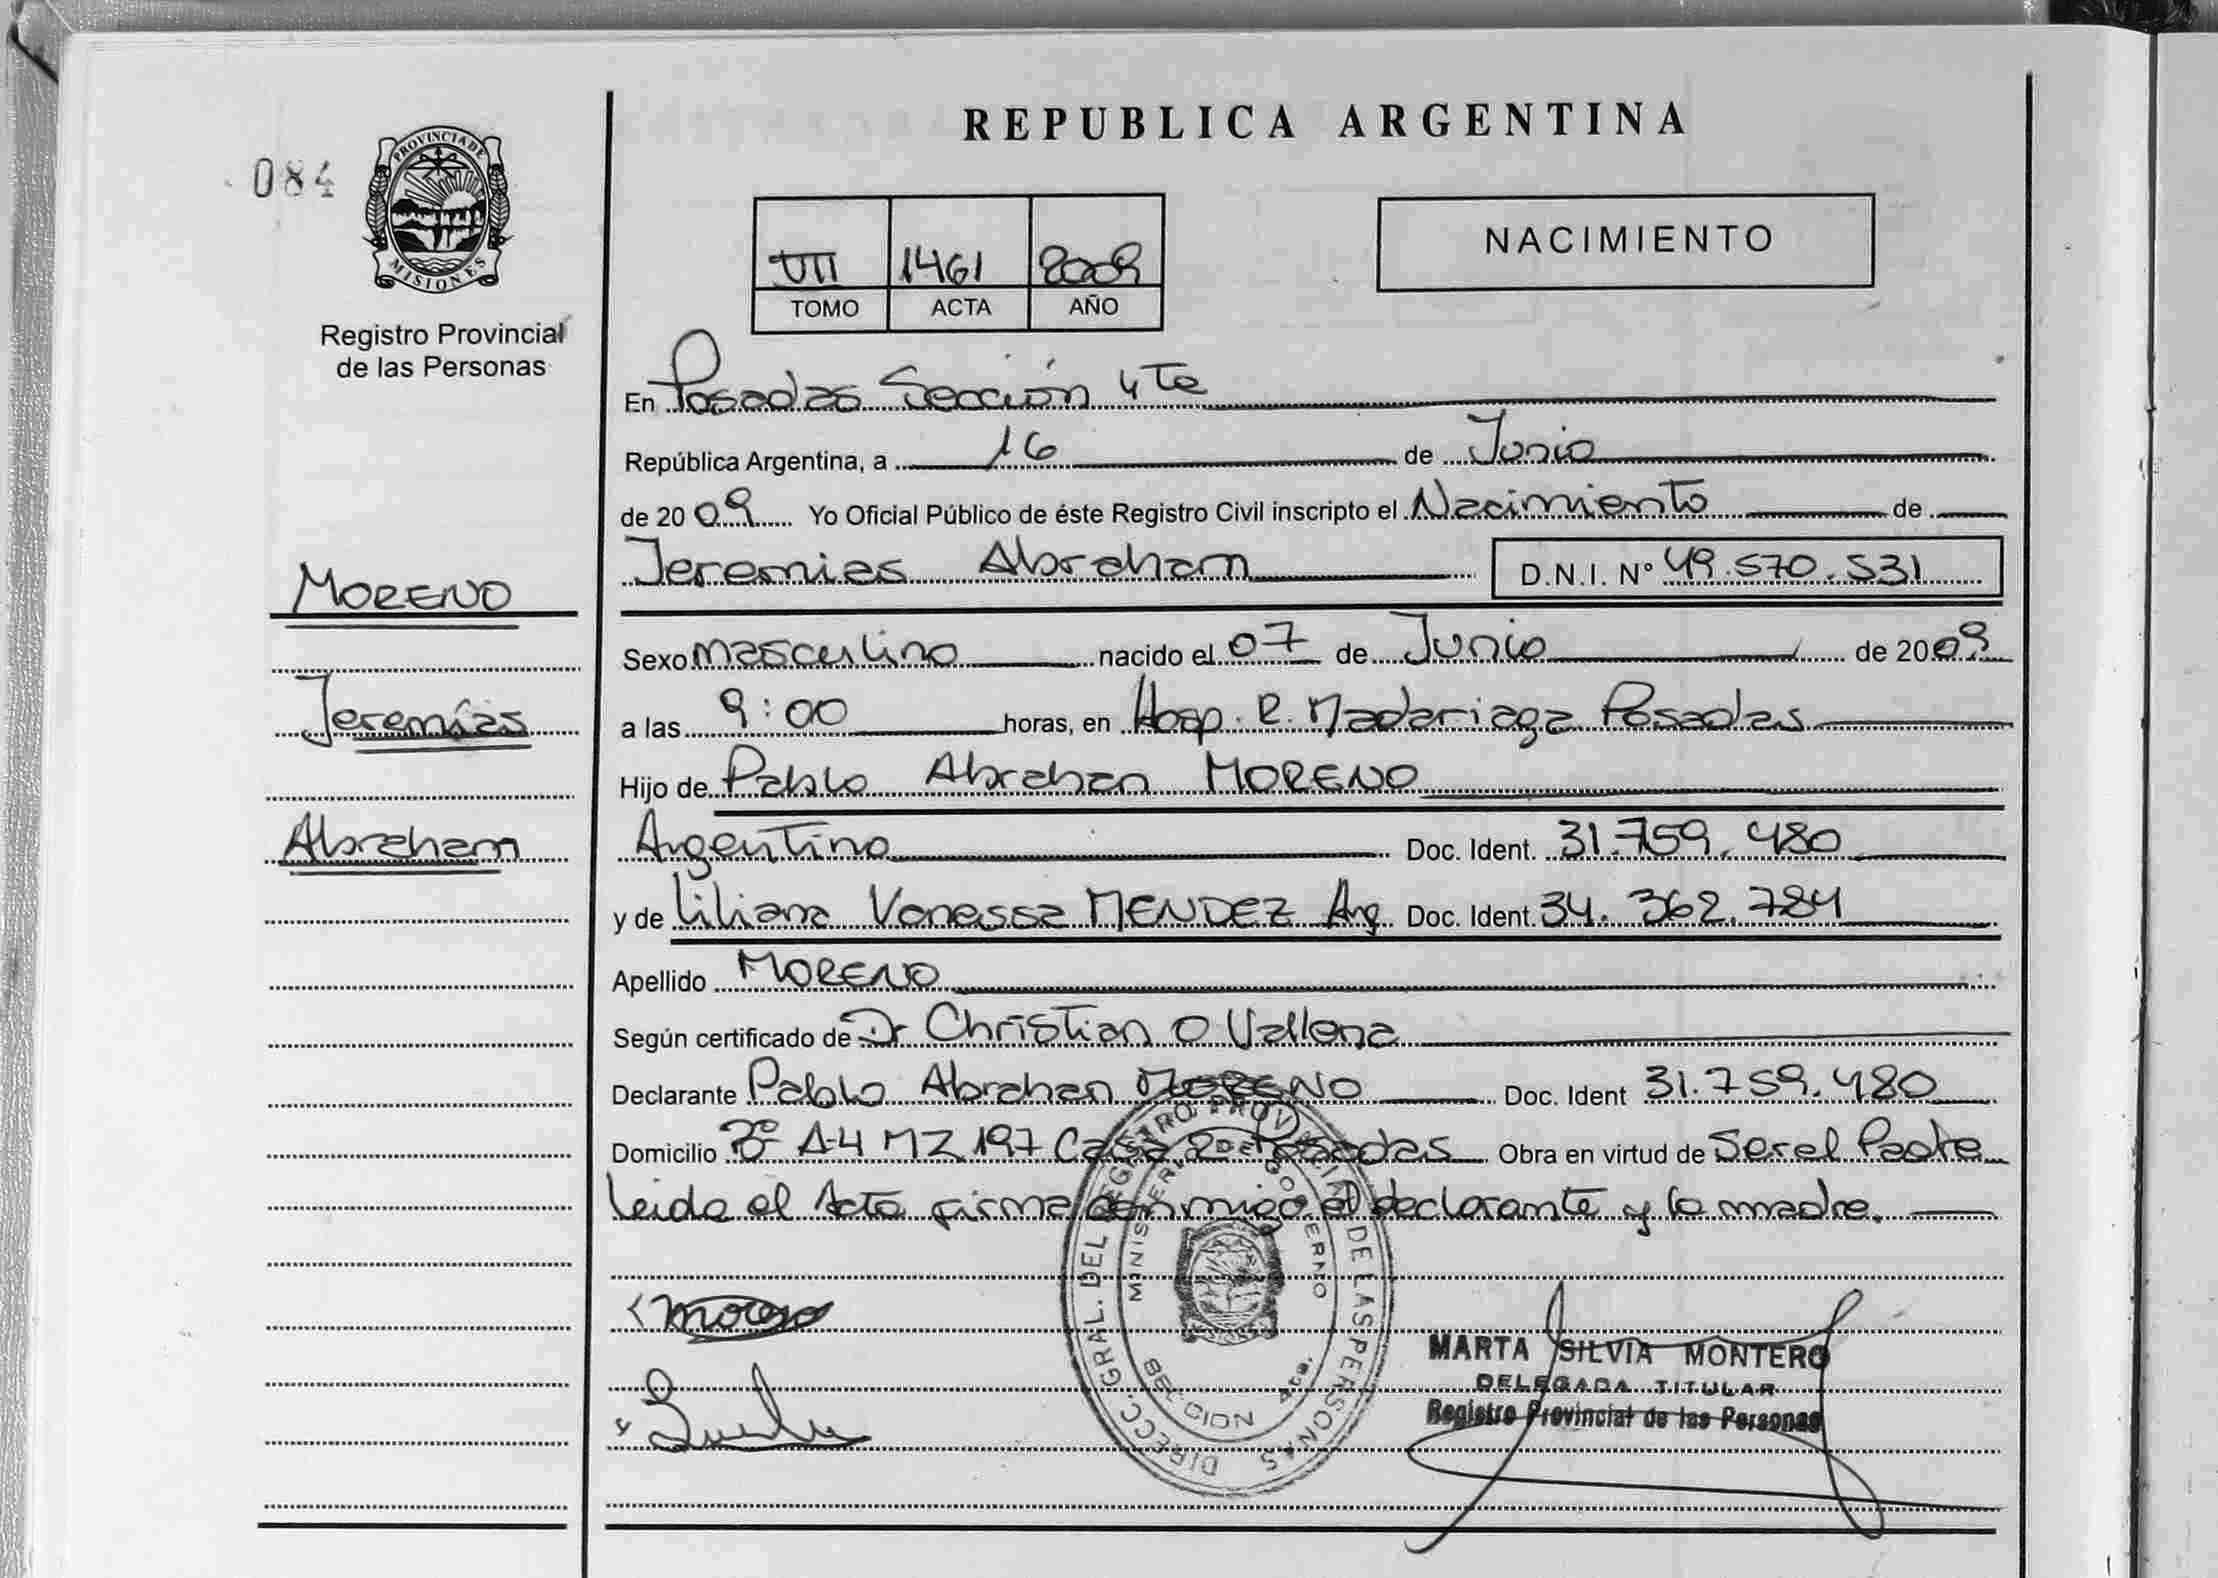 REPUBLICA ARGENTINA
084
PROVINCIA DE
MISIONES
Registro Provincial
de las Personas
VII 1461 2009
TOMO ACTA AÑO
NACIMIENTO
En Posadas Sección 4ta
República Argentina, a 16 de Junio
de 2009 Yo Oficial Público de éste Registro Civil inscripto el Nacimiento de
Jeremias Abraham D.N.I. N° 49.570.531
MORENO
Jeremías
Abraham
Sexo masculino nacido el 07 de Junio de 2009
a las 9:00 horas, en Hosp. R. Madariaga Posadas
Hijo de Pablo Abrahan MORENO
Argentino Doc. Ident. 31.759.480
y de Liliana Vanessa MENDEZ Arg. Doc. Ident. 34.362.784
Apellido MORENO
Según certificado de Dr Christian O Vallena
Declarante Pablo Abrahan MORENO Doc. Ident 31.759.480
Domicilio Bº A-4 MZ 197 Casa 2 Posadas Obra en virtud de Ser el Padre
leida el Acta firma conmigo el declarante y la madre.
DIRECC. GRAL. DEL REGISTRO PROVINCIAL DE LAS PERSONAS
MINISTERIO DE GOBIERNO
SECCION 4ta.
Moreno
MARTA SILVIA MONTERO
DELEGADA TITULAR
Registro Provincial de las Personas